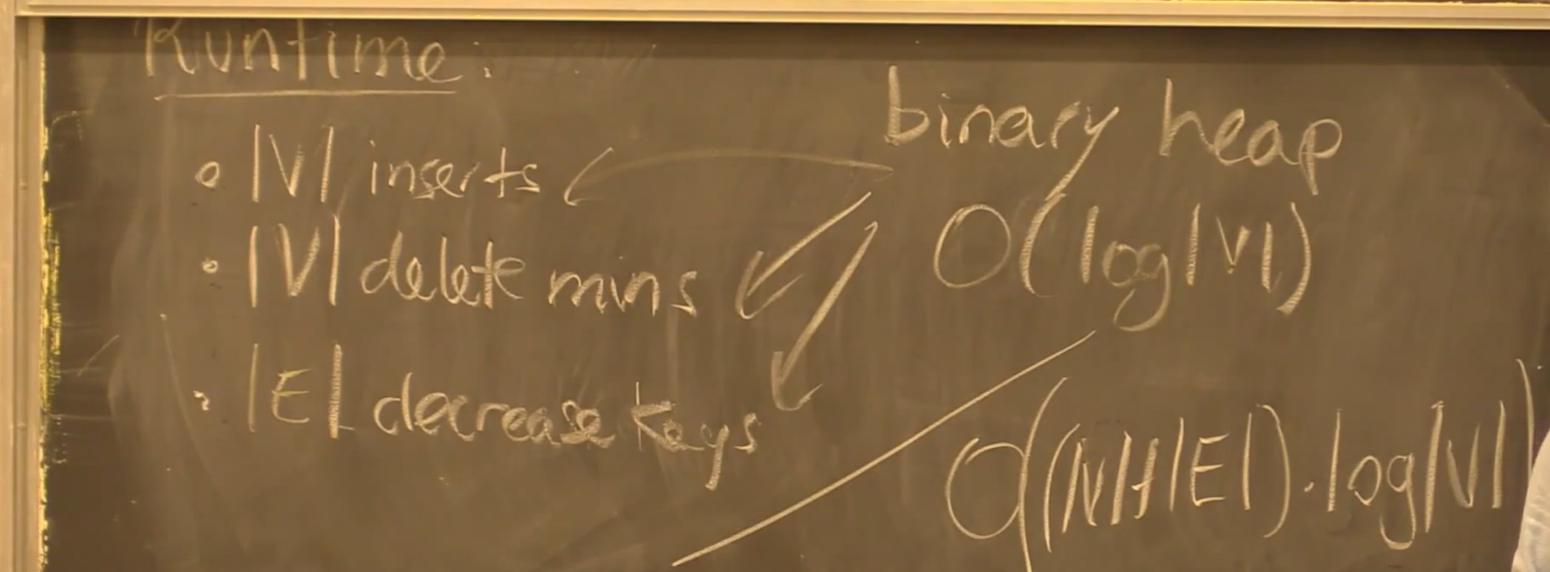 Runtime:
• |V| inserts
• |V| delete mins
• |E| decrease keys
binary heap
O(log|V|)
O((|V|+|E|)·log|V|)